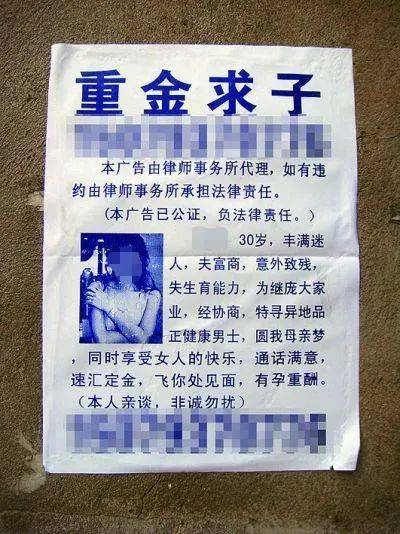 重金求子
本广告由律师事务所代理，如有违
约由律师事务所承担法律责任。
（本广告已公证，负法律责任。）
30岁，丰满迷
人，夫富商，意外致残，
失生育能力，为继庞大家
业，经协商，特寻异地品
正健康男士，圆我母亲梦
，同时享受女人的快乐，通话满意，
速汇定金，飞你处见面，有孕重酬。
（本人亲谈，非诚勿扰）